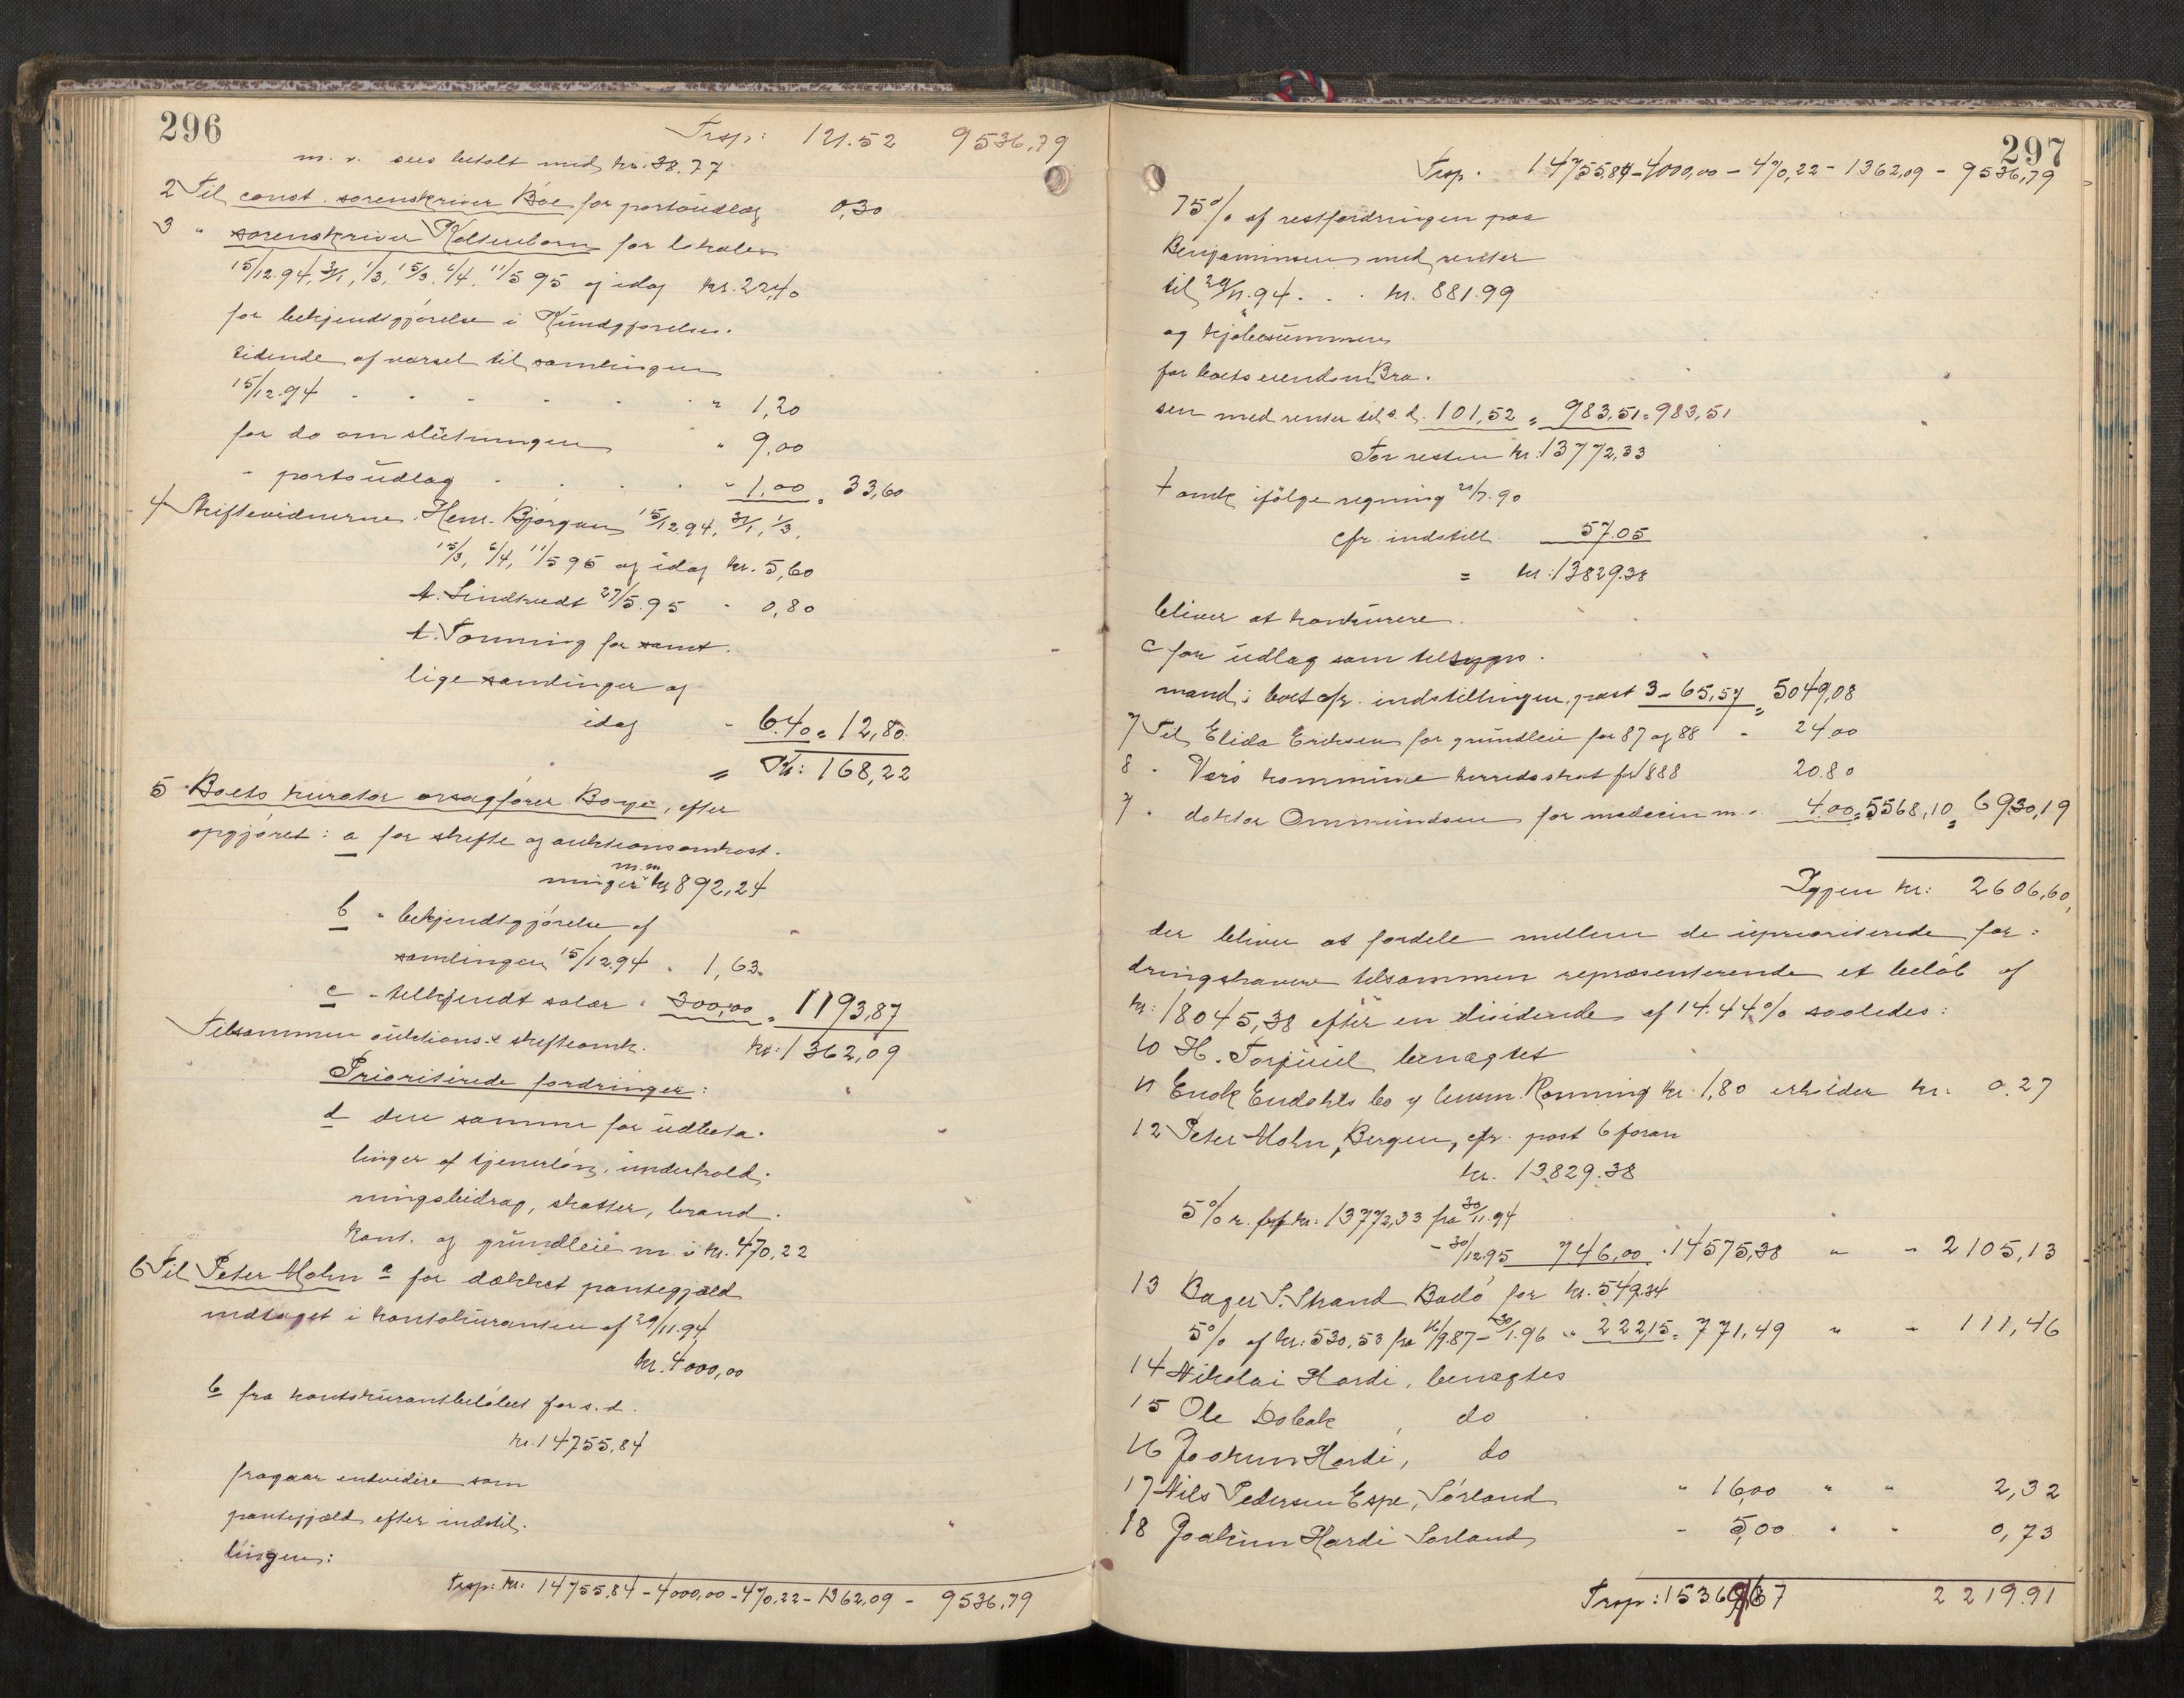 296
Trsp: 121.52 9536,79
m. v. sees betalt med kr. 38.77
2 Til const. sorenskriver Böe for portoudlæg 0,30
3 " sorenskriver Koltenborn for lokaler
15/12.94, 31/1, 1/3, 15/3, 6/4, 11/5 95 og idag kr. 22,40
for bekjendtgjörelse i Kundgjörelses-
tidende af varsel til samlingen
15/12.94 " 1,20
for do om slutningen " 9,00
- portoudlag " 1,00 = 33,60
4 Skiftevidnerne. Henr. Bjørgan 15/12.94, 31/1, 1/3,
15/3, 6/4, 11/5 95 og idag kr. 5,60
A. Lindtvedt 27/5.95 - 0,80
t. Tønning for samt-
lige samlinger og
idag - 6.40 = 12,80
= Kr: 168,22
5 Boets kurator orsagförer Boye, efter
opgjöret: a for skifte og auktionsomkost-
ninger m.m kr 892,24
b " bekjendtgjörelse af
samlingen 15/12.94 " 1,63
c - tilkjendt salær " 300,00 = 1193,87
Tilsammen auktions- & skifteomk. kr: 1362,09
Prioriterede fordringer:
d den samme for udbeta-
linger af tjenerlön, underhold-
ningsbidrag, skatter, brand-
kont. og grundleie m. v. kr. 470,22
6 Til Peter Mohn a for dækket pantegjæld
indtaget i kontokuranten af 29/11.94
kr. 4000,00
b fra kontokurantbelöbet for s. d.
kr. 14755,84
fragaar endvidere som
pantegjæld efter indstil-
lingen:
Trsp: kr. 14755,84 - 4000,00 - 470,22 - 1362,09 - 9536,79
297
Trsp. 14755,84 - 4000,00 - 470,22 - 1362,09 - 9536,79
75% af restfordringen paa
Benjaminsen med renter
til 29/11.94 . . . kr. 881.99
og kjøbesummen
for boets eiendom Bra-
sen med renter til s. d. 101,52 = 983,51 = 983,51
For resten kr. 13772,33
+ omk ifölge regning 21/7.90
cfr. indstill. 57.05
= kr: 13829.38
bliver at konkurere.
c for udlag som tilsyns-
mand i boet cfr. indstillingen, post 3 - 65,57 = 5049,08
7 Til Elida Eriksen for grundleie for 87 og 88 - 24,00
8 " Værö kommune herredsskat for 1888 20.80
7 " doktor Ommundsen for medecin m. v. 4.00 = 5568,10 = 6930,19
Igjen kr: 2606,60,
der bliver at fordele mellem de uprioriterede for-
dringshavere tilsammen repræsenterende et belöb af
kr: 18045,38 efter en dividende af 14.44% saaledes:
10 H. Torjuul benægtet
11 Enok Endahls bo v lensm. Rønning kr. 1,80 erholder kr: 0.27
12 Peter Mohn, Bergen, cfr. post 6 foran
kr. 13829.38
5% r. af kr: 13772,33 fra 30/11.94
- 30/12.95 746,00 . 14575,38 " - 2105,13
13 Bager S. Strand Bodö for kr. 549.34
5% af kr: 530,53 fra 16/9.87 - 30/1.96 " 222,15 = 771,49 " - 111,46
14 Nikolai Hardi, benægtes
15 Ole Dobak, do
16 Joakim Hardi, do
17 Nils Pedersen Espe, Sörland " 16,00 " " 2,32
18 Joakim Hardi Sørland - 5,00 " - 0,73
Trsp: 15369,67 2219.91